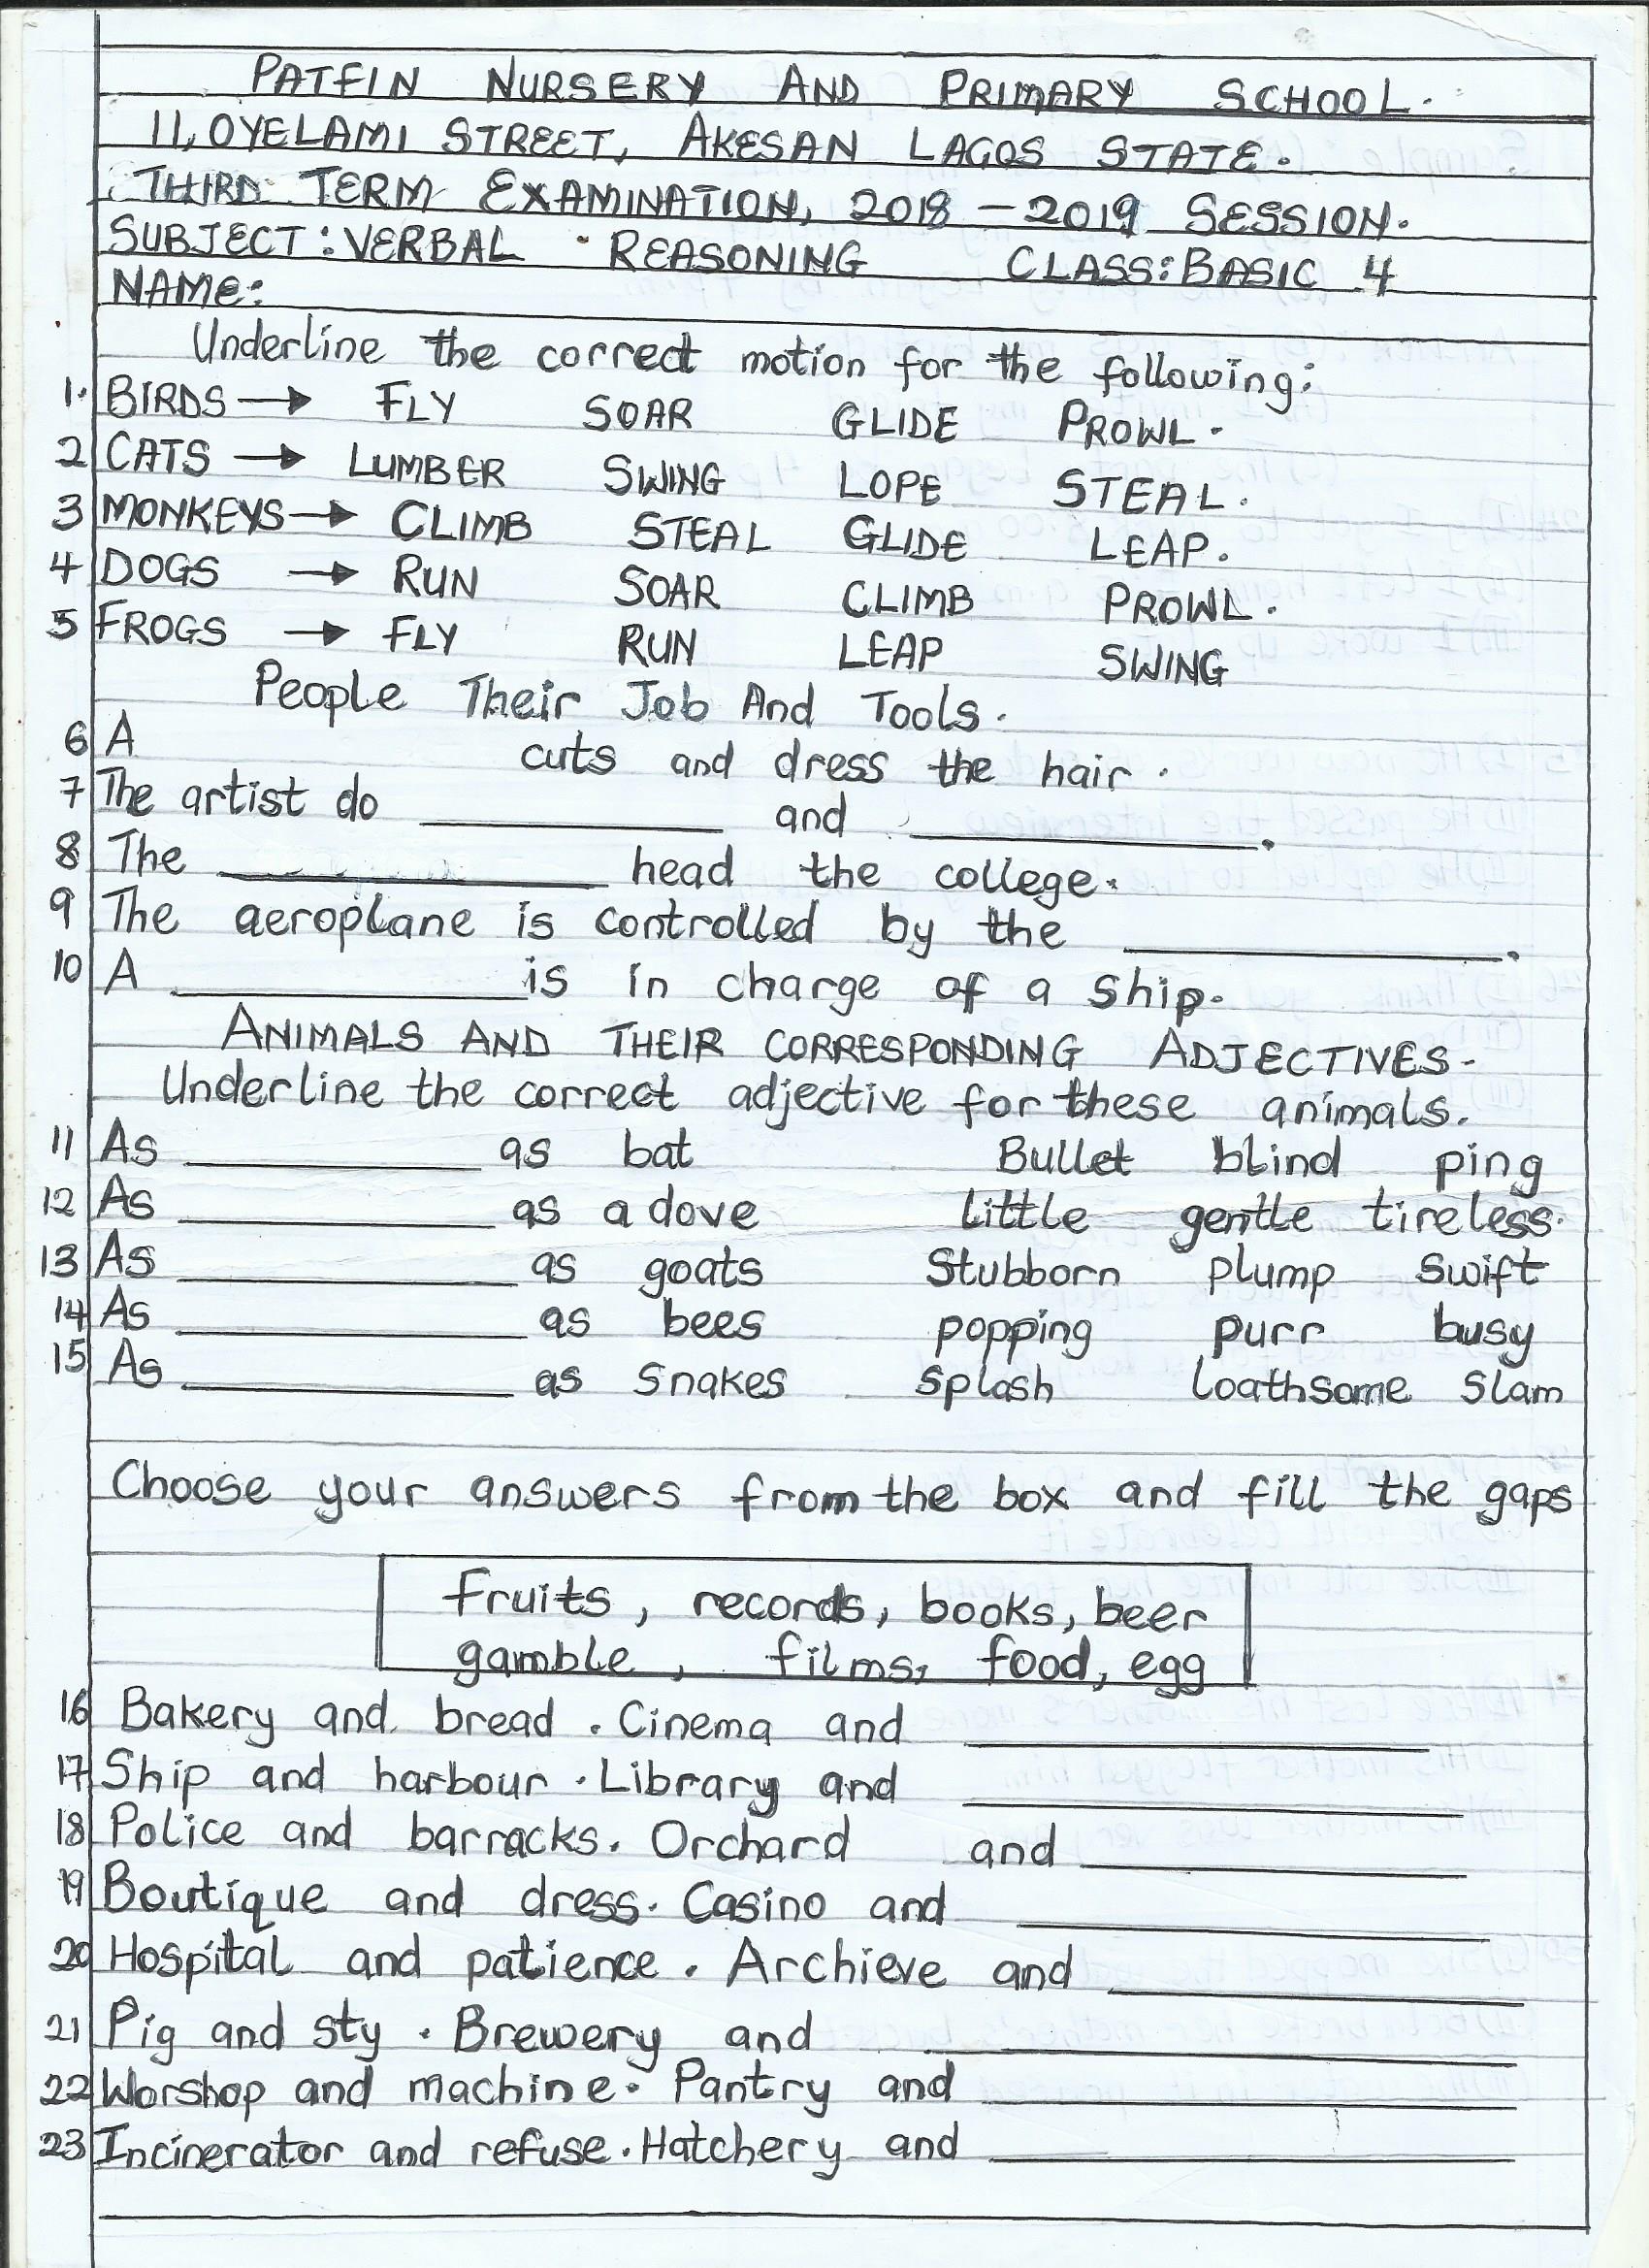 PATFIN NURSERY AND PRIMARY SCHOOL.
11, OYELAMI STREET, AKESAN LAGOS STATE.
THIRD TERM EXAMINATION, 2018 - 2019 SESSION.
SUBJECT: VERBAL REASONING CLASS: BASIC 4
NAME:
Underline the correct motion for the following:
1. BIRDS → FLY SOAR GLIDE PROWL.
2 CATS → LUMBER SWING LOPE STEAL.
3 MONKEYS → CLIMB STEAL GLIDE LEAP.
4 DOGS → RUN SOAR CLIMB PROWL.
5 FROGS → FLY RUN LEAP SWING
People Their Job And Tools.
6 A cuts and dress the hair.
7 The artist do __________ and __________.
8 The __________ head the college.
9 The aeroplane is controlled by the __________.
10 A __________ is in charge of a ship.
ANIMALS AND THEIR CORRESPONDING ADJECTIVES-
Underline the correct adjective for these animals.
11 As __________ as bat Bullet blind ping
12 As __________ as a dove little gentle tireless.
13 As __________ as goats Stubborn plump swift
14 As __________ as bees popping purr busy
15 As __________ as snakes splash loathsome slam
Choose your answers from the box and fill the gaps
fruits, records, books, beer
gamble, films, food, egg
16 Bakery and bread. Cinema and __________
17 Ship and harbour. Library and __________
18 Police and barracks. Orchard and __________
19 Boutique and dress. Casino and __________
20 Hospital and patience. Archieve and __________
21 Pig and sty. Brewery and __________
22 Worshop and machine. Pantry and __________
23 Incinerator and refuse. Hatchery and __________